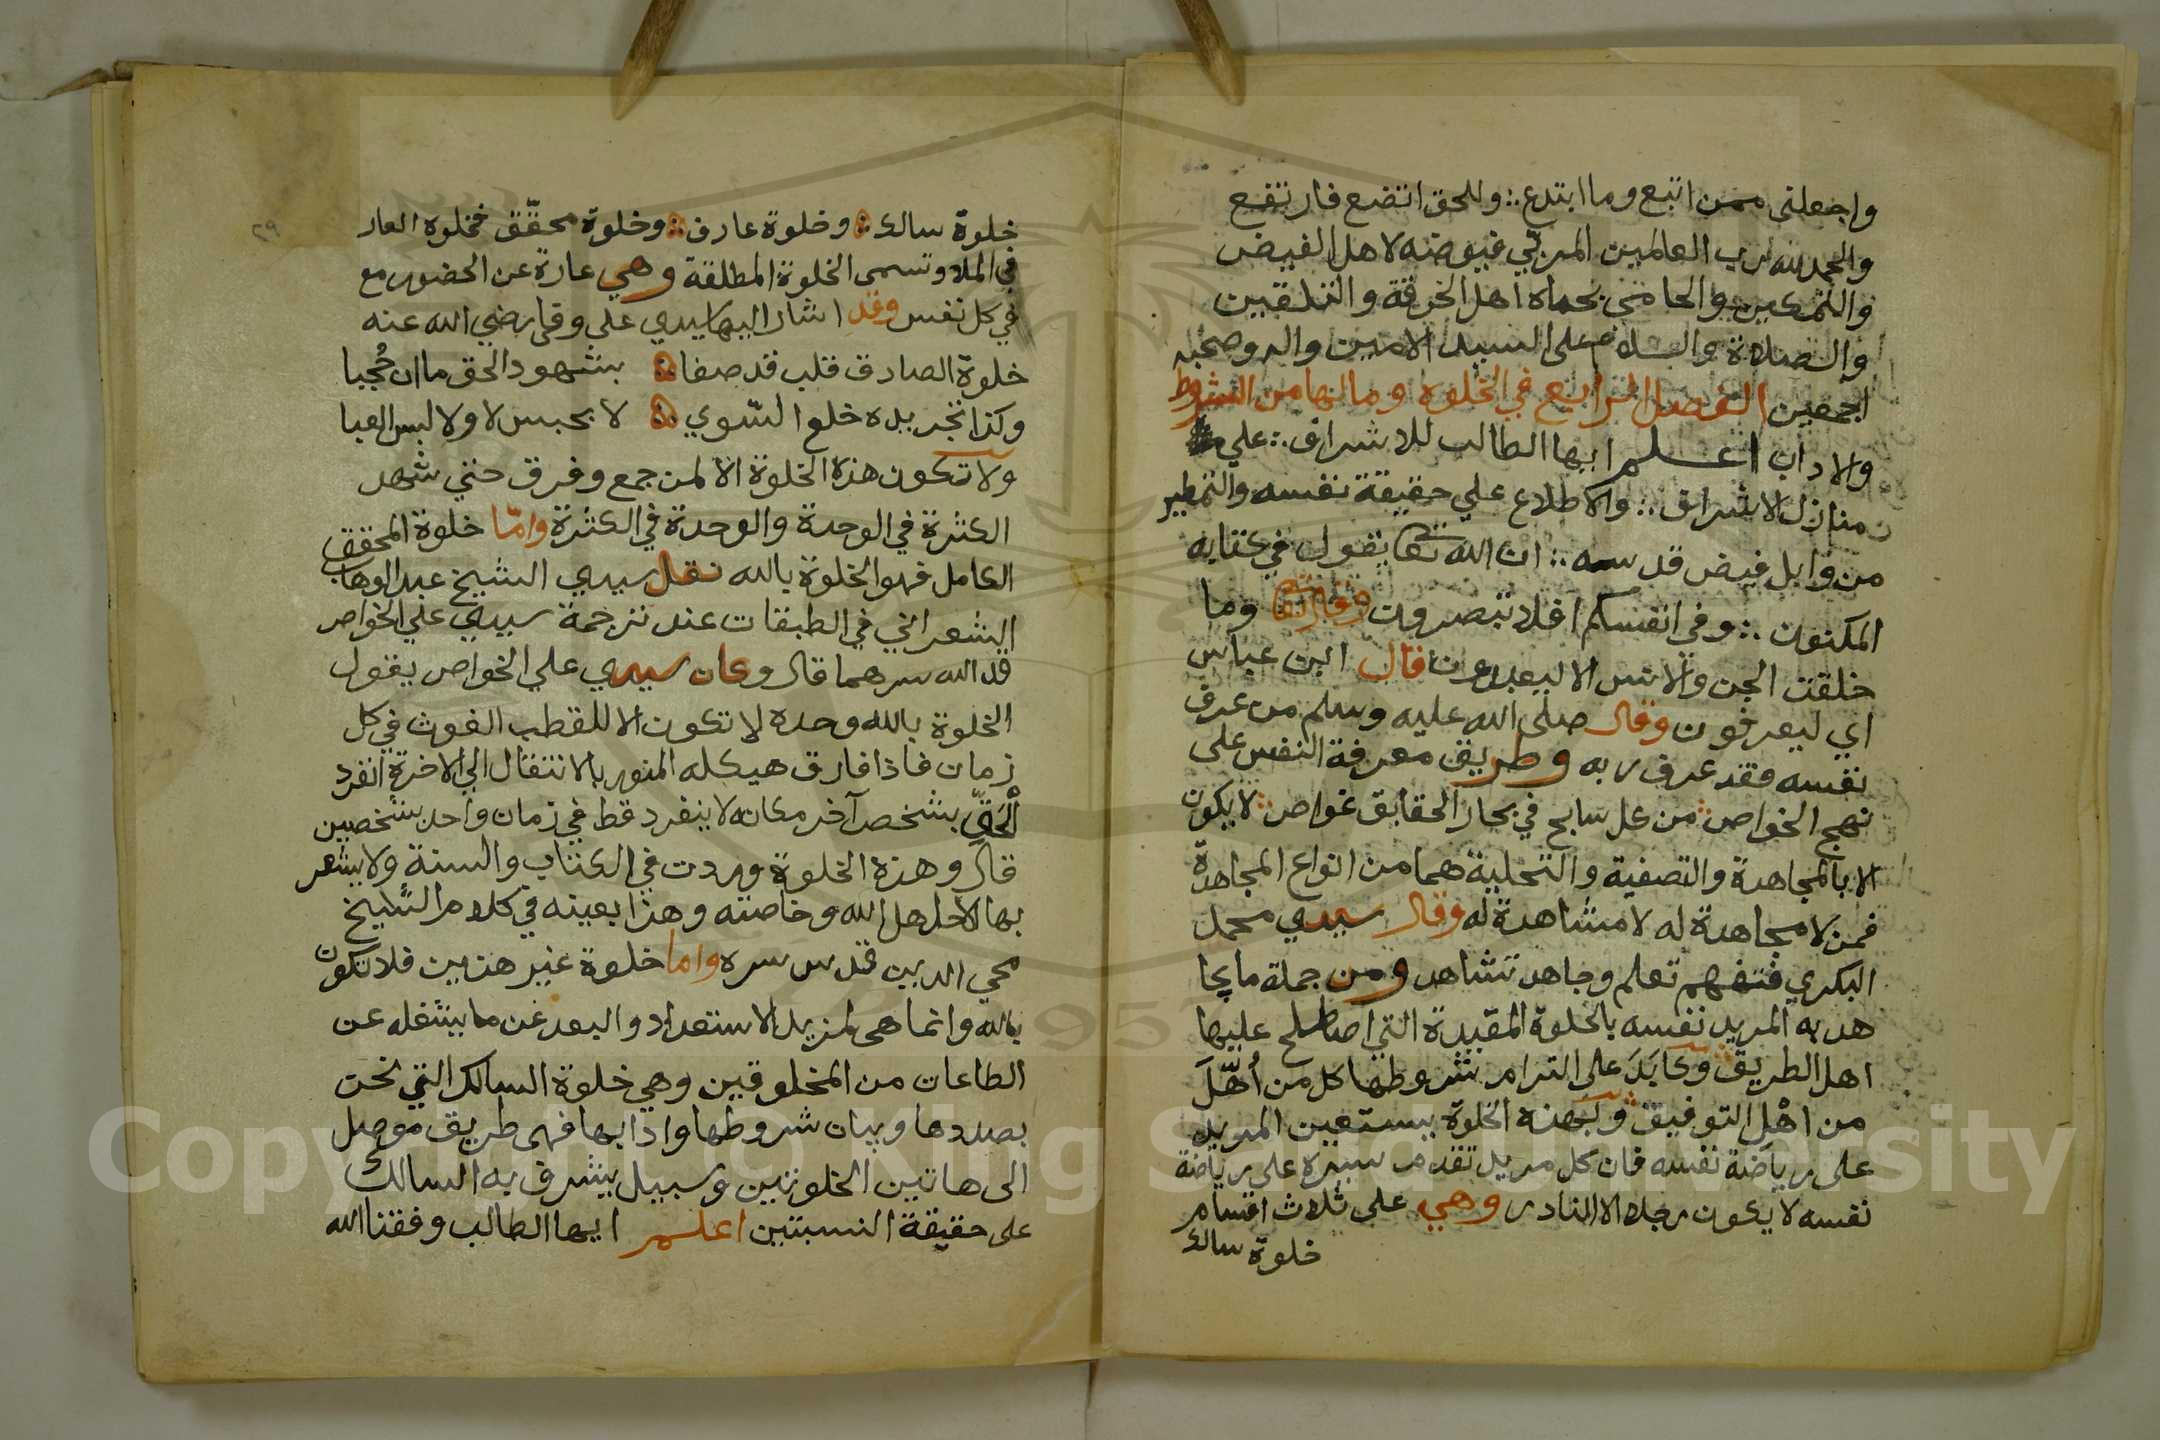 واجعلني ممن اتبع وما ابتدع ∴ وللحق اتضع فارتفع
والحمد لله رب العالمين المربي فيوضه لاهل الفيض
والتمكين والحامي بحماه اهل الخرقة والتلقين
والصلاة والسلام على السيد الامين واله وصحبه
اجمعين الفصل الرابع في الخلوة وما لها من الشروط
والاداب اعلم ايها الطالب للاشراق ∴ علي
منازل الاشراق ∴ والاطلاع علي حقيقة نفسه والتمطير
من وابل فيض قدسه ∴ ان الله تعا يقول في كتابه
المكنون ∴ وفي انفسكم افلا تبصرون وقال تعا وما
خلقت الجن والانس الا ليعبدون قال ابن عباس
اي ليعرفون وقال صلى الله عليه وسلم من عرف
نفسه فقد عرف ربه وطريق معرفة النفس على
نهج الخواص من كل سابح في بحار الحقايق غواص لا يكون
الا بالمجاهدة والتصفية والتحلية هما من انواع المجاهدة
فمن لا مجاهدة له لا مشاهدة له وقال سيدي محمد
البكري فتفهم تعلم وجاهد تشاهد ومن جملة ما يجا
هد به المريد نفسه بالخلوة المقيدة التي اصطلح عليها
اهل الطريق وكابَدَ على التزام شروطها كل من أُهّلَ
من اهْل التوفيق وبهذه الخلوة يستعين المريد
على رياضة نفسه فان كل مريد تقدم سيره على رياضة
نفسه لا يكون رجلا الا النادر وهي على ثلاث اقسام
خلوة سالك
٢٩
خلوة سالك ∴ وخلوة عارف ∴ وخلوة محقّق فخلوة العار
في الملا وتسمى الخلوة المطلقة وهي عارة عن الحضور مع
في كل نفس وقد اشار اليها سيدي على وفى رضي الله عنه
خلوة الصادق قلب قد صفا بشهود الحق ما ان حُجبا
وكذا تجريده خلع السّوي لا بحبس لا ولا لبس العبا
ولا تكون هذه الخلوة الا لمن جمع وفرق حتي شهد
الكثرة في الوحدة والوحدة في الكثرة وامّا خلوة المحقق
الكامل فهو الخلوة بالله نقل سيدي الشيخ عبد الوهاب
الشعراني في الطبقات عند ترجمة سيدي علي الخواص
قد الله سرهما قال وكان سيدي علي الخواص يقول
الخلوة بالله وحده لا تكون الا للقطب الغوث في كل
زمان فاذا فارق هيكله المنور بالانتقال الي الاخرة انفرد
الحَقّ بشخص آخر مكانه لا ينفرد قط في زمان واحد بشخصين
قال وهذه الخلوة وردت في الكتاب والسنة ولا يشعر
بها الا اهل الله وخاصته وهذا بعينه في كلام الشّيخ
محي الدين قدس سره واما خلوة غير هذين فلا تكون
بالله وانما هي لمزيد الاستعداد والبعد عن ما يشغله عن
الطاعات من المخلوقين وهي خلوة السالك التي نحن
بصددها وبيان شروطها وادابها فهى طريق موصل
الى هاتين الخلوتين وسبيل يشرف به السالك
على حقيقة النسبتين اعلم ايها الطالب وفقنا الله
Copyright © King Saud University